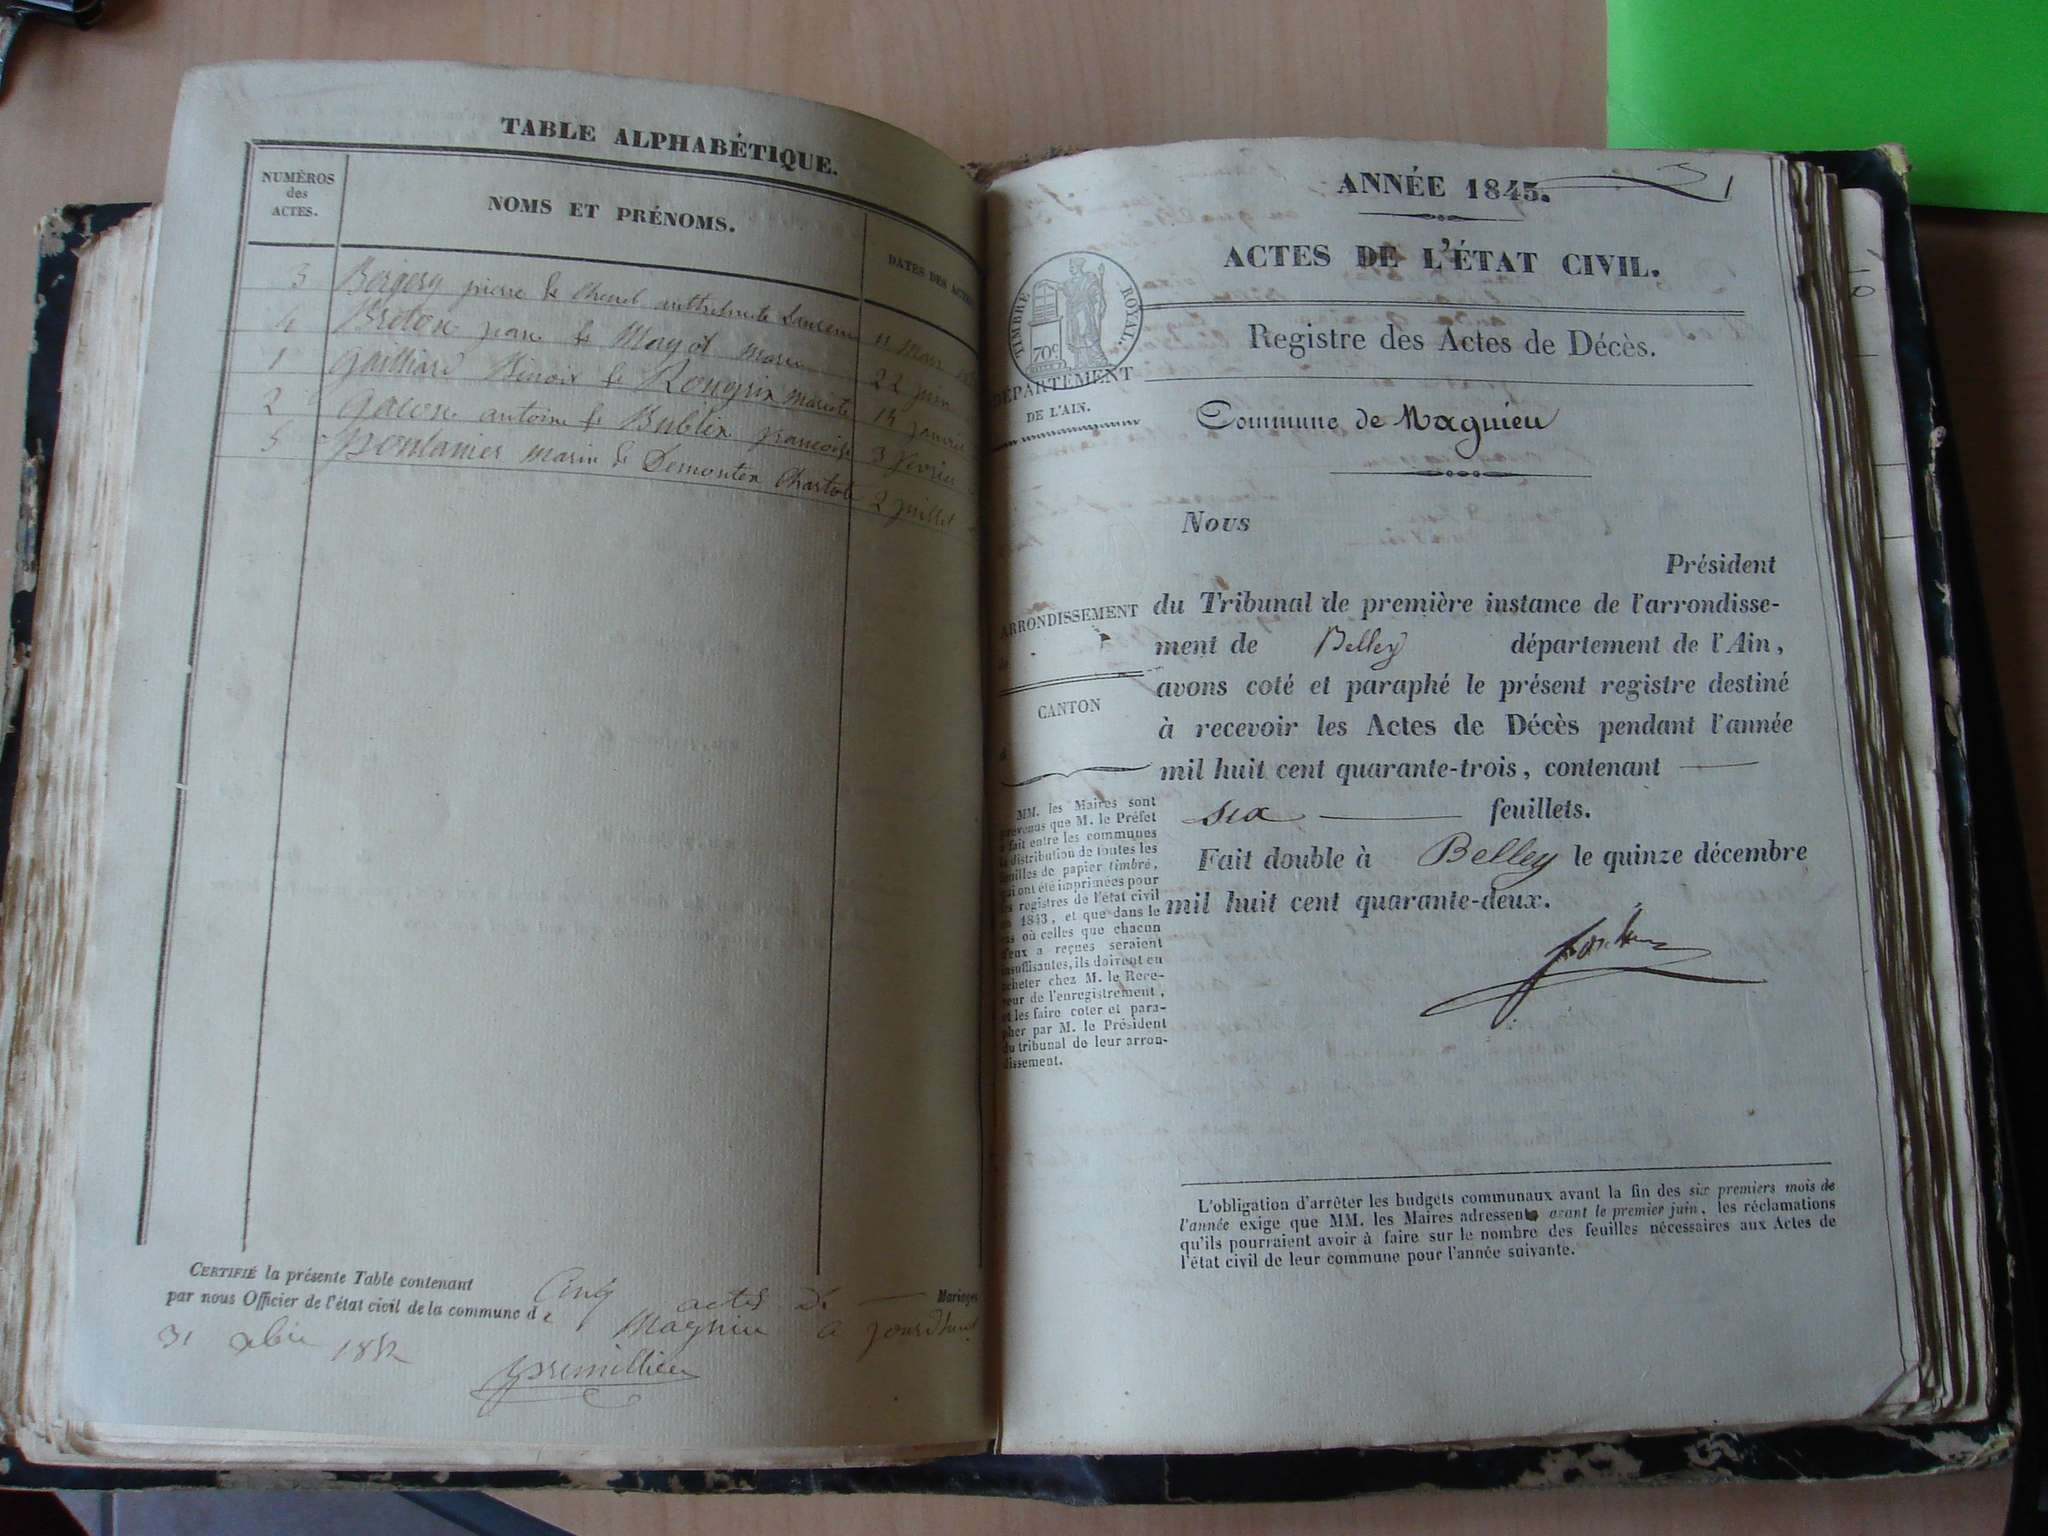 TABLE ALPHABÉTIQUE.
NUMÉROS
des
ACTES.
NOMS ET PRÉNOMS.
DATES DES ACTES
3 Bergery pierre & anthelmette 11 mars
4 Breton jean & Mayot marie 22 juin
1 Gailliard Benoit & Rougrix mariete 14 janvier
2 Gacon antoine & Bublix françoise 3 fevrier
5 marin & Demonten Charlote 2 juillet
CERTIFIÉ la présente Table contenant Cinq actes de Mariages
par nous Officier de l'état civil de la commune de Magnieu a jourdhui
31 xbre 1842
premillieu
1
ANNÉE 1843.
ACTES DE L'ÉTAT CIVIL.
TIMBRE ROYAL.
70c
Registre des Actes de Décès.
DÉPARTEMENT
DE L'AIN.
Commune de Magnieu
ARRONDISSEMENT
de
CANTON
d
MM. les Maires sont
prévenus que M. le Préfet
a fait entre les communes
la distribution de toutes les
feuilles de papier timbré,
qui ont été imprimées pour
les registres de l'état civil
de 1843, et que dans le
cas où celles que chacun
d'eux a reçues seraient
insuffisantes, ils doivent en
acheter chez M. le Rece-
veur de l'enregistrement,
et les faire coter et para-
pher par M. le Président
du tribunal de leur arron-
dissement.
Nous
Président
du Tribunal de première instance de l'arrondisse-
ment de Belley département de l'Ain,
avons coté et paraphé le présent registre destiné
à recevoir les Actes de Décès pendant l'année
mil huit cent quarante-trois, contenant
six feuillets.
Fait double à Belley le quinze décembre
mil huit cent quarante-deux.
L'obligation d'arrêter les budgets communaux avant la fin des six premiers mois de
l'année exige que MM. les Maires adressent avant le premier juin, les réclamations
qu'ils pourraient avoir à faire sur le nombre des feuilles nécessaires aux Actes de
l'état civil de leur commune pour l'année suivante.